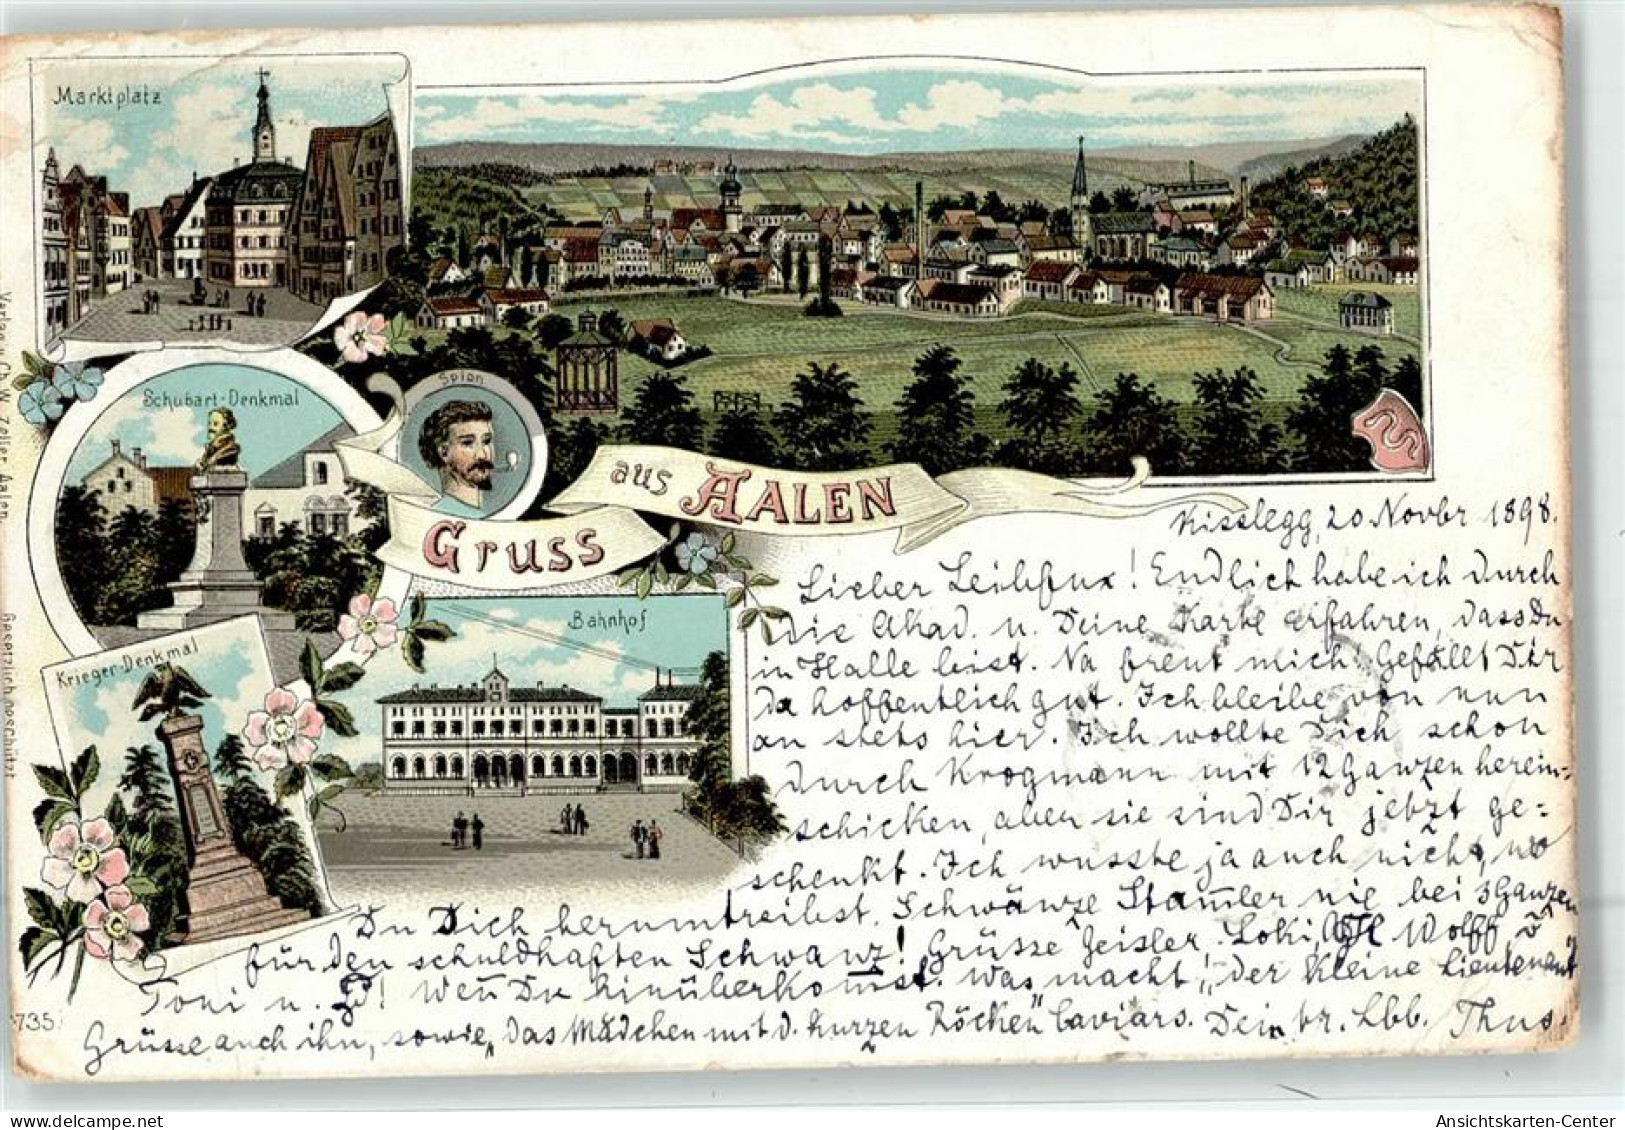 Marktplatz
Schubart-Denkmal
Spion
Gruss
aus AALEN
Krieger-Denkmal
Bahnhof
Verlag v. Ch. W. Zeller Aalen.
Gesetzlich geschützt
735.
Kisslegg, 20. Novbr 1898.
Lieber Leibfux! Endlich habe ich durch
die Akad. u. Deine Karte erfahren, dass Du
in Halle bist. Na freut mich. Gefällt Dir
da hoffentlich gut. Ich bleibe von nun
an stets hier. Ich wollte Dich schon
durch Krogmann mit 12 Ganzen herein-
schicken, aber sie sind Dir jetzt ge-
schenkt. Ich wusste ja auch nicht, wo
Du Dich herumtreibst. Schwänze Stamler nie bei 3 Ganzen
für den schuldhaften Schwanz! Grüsse Zeisler. Loki, Wolff,
Toni u. ! Wen̄ Du hinüberkom̄st. Was macht „der kleine Lieutenant"
Grüsse auch ihn, sowie „das Mädchen mit d. kurzen Röcken" Caviars. Dein br. Lbb. Thus.
Ansichtskarten-Center